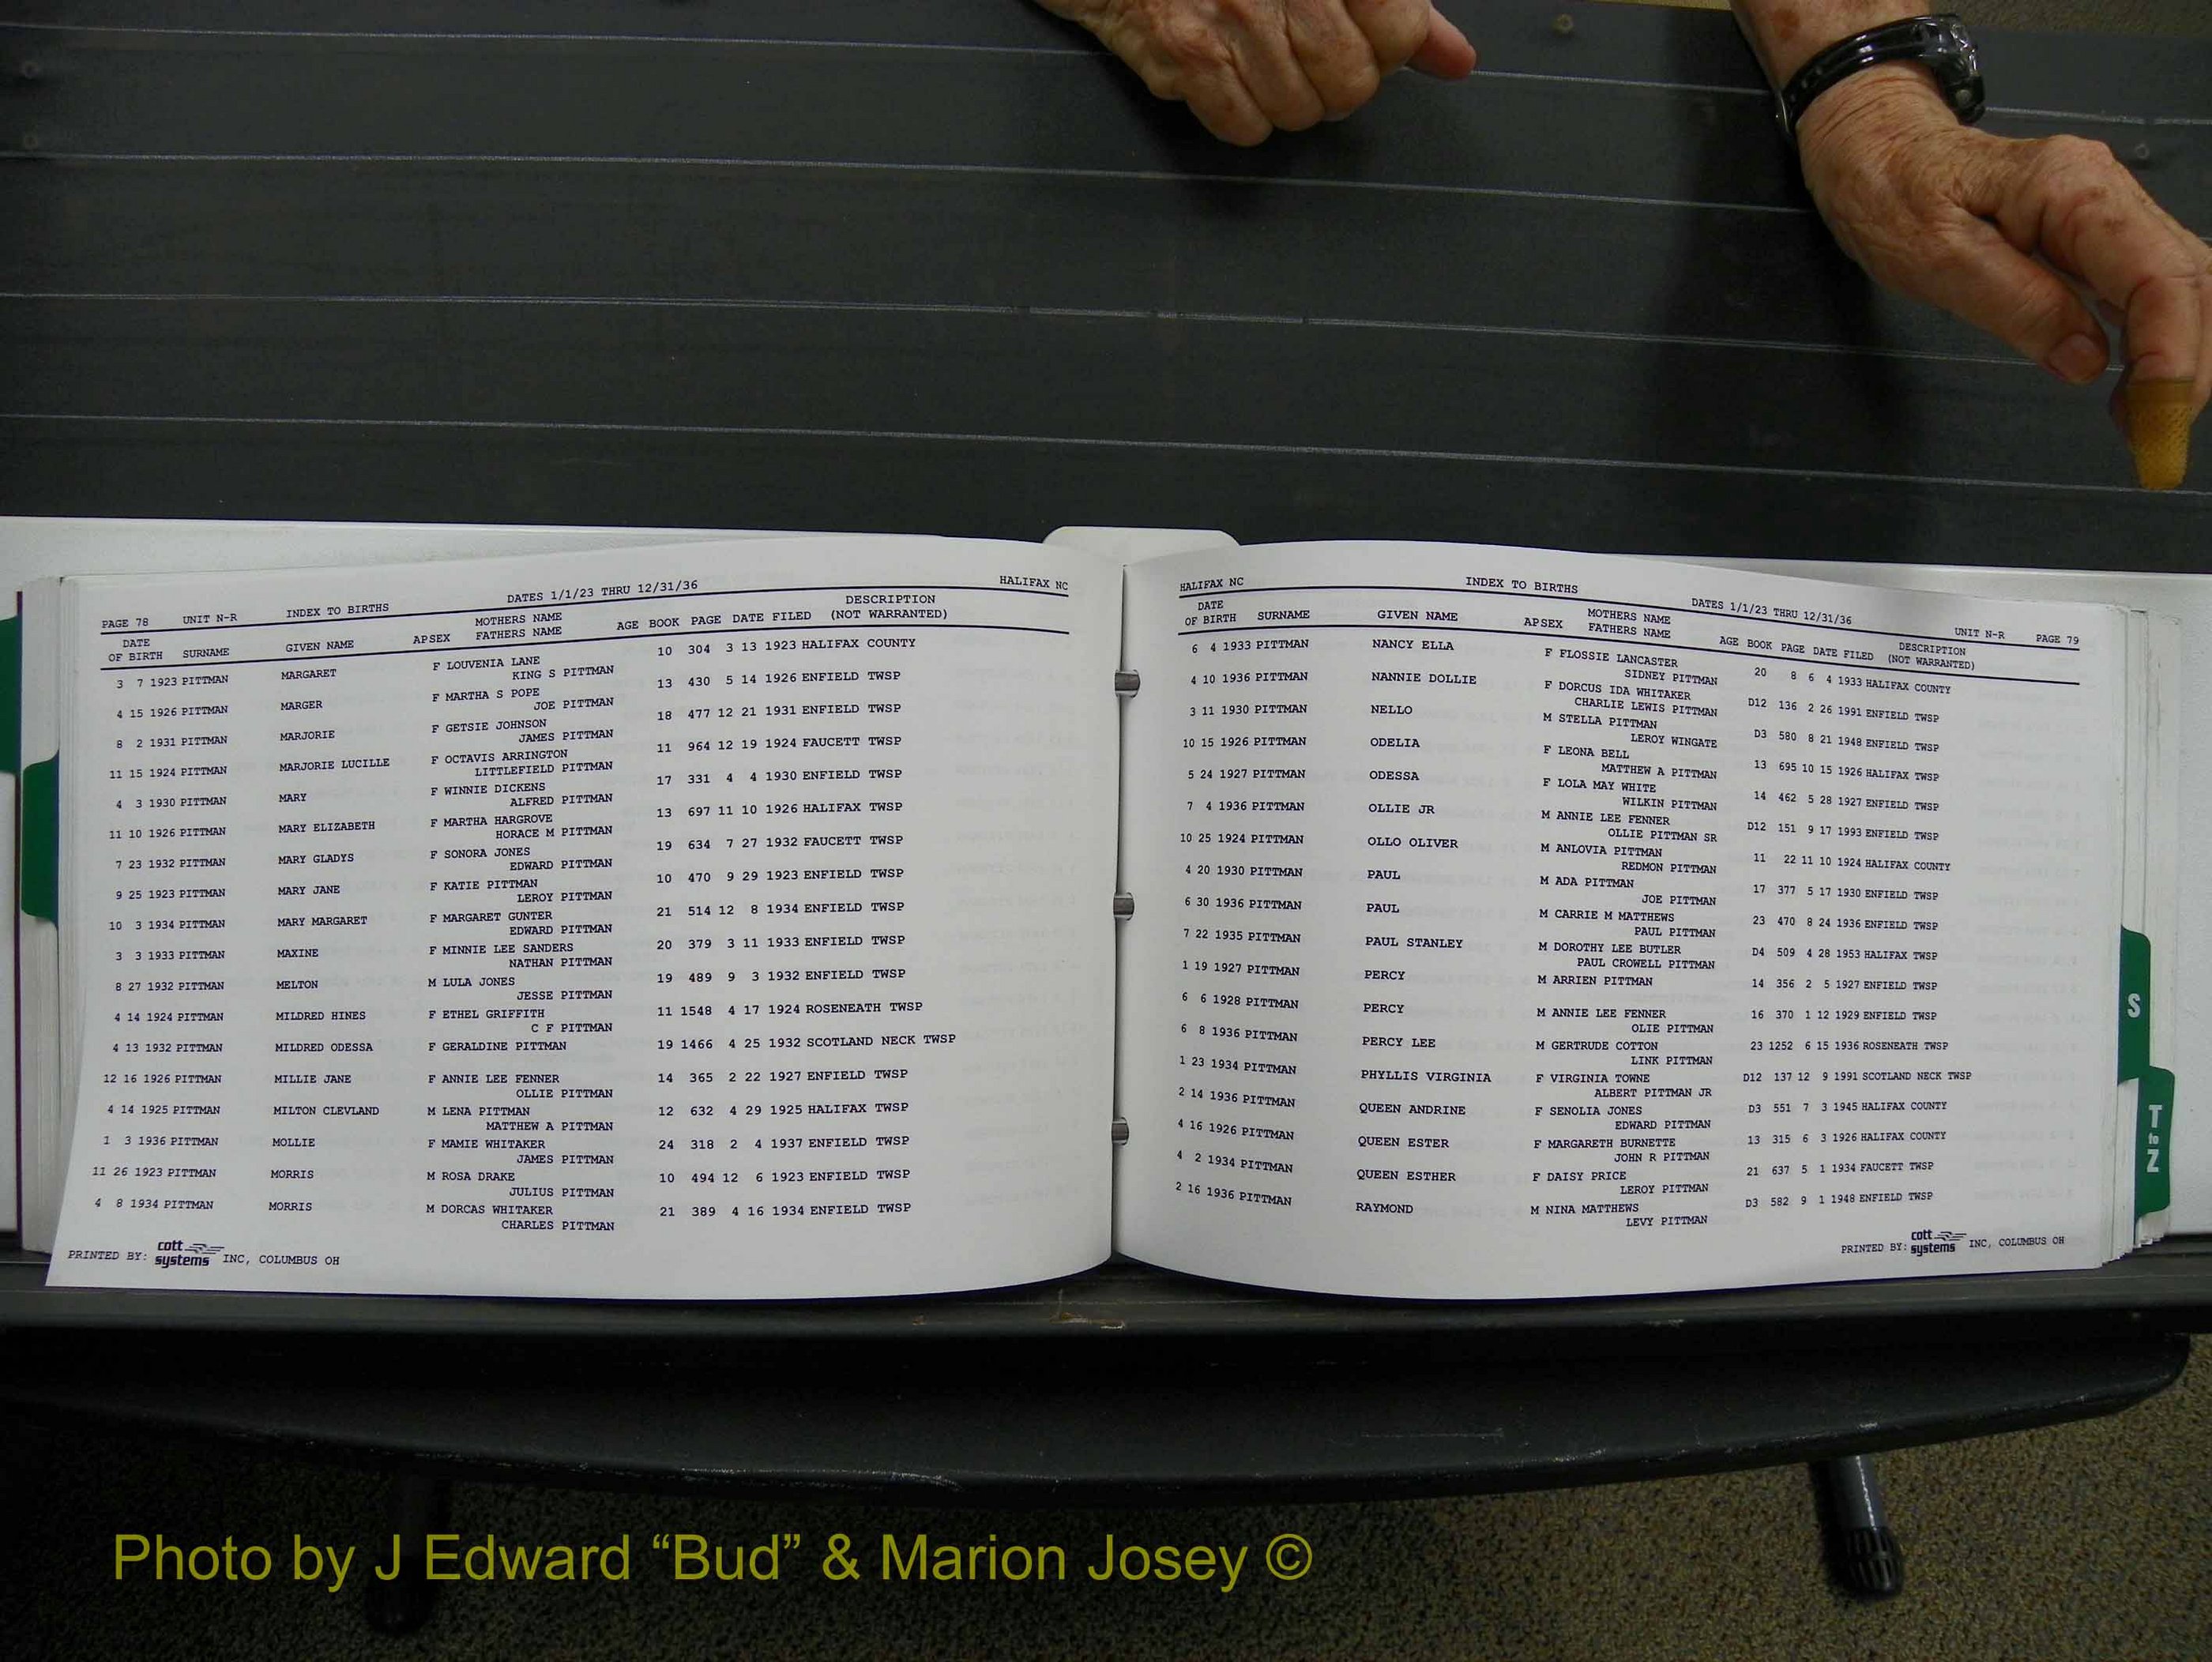 PAGE 78 UNIT N-R INDEX TO BIRTHS DATES 1/1/23 THRU 12/31/36 HALIFAX NC
DATE OF BIRTH SURNAME GIVEN NAME APSEX MOTHERS NAME FATHERS NAME AGE BOOK PAGE DATE FILED DESCRIPTION (NOT WARRANTED)
3 7 1923 PITTMAN MARGARET F LOUVENIA LANE 10 304 3 13 1923 HALIFAX COUNTY
KING S PITTMAN
4 15 1926 PITTMAN MARGER F MARTHA S POPE 13 430 5 14 1926 ENFIELD TWSP
JOE PITTMAN
8 2 1931 PITTMAN MARJORIE F GETSIE JOHNSON 18 477 12 21 1931 ENFIELD TWSP
JAMES PITTMAN
11 15 1924 PITTMAN MARJORIE LUCILLE F OCTAVIS ARRINGTON 11 964 12 19 1924 FAUCETT TWSP
LITTLEFIELD PITTMAN
4 3 1930 PITTMAN MARY F WINNIE DICKENS 17 331 4 4 1930 ENFIELD TWSP
ALFRED PITTMAN
11 10 1926 PITTMAN MARY ELIZABETH F MARTHA HARGROVE 13 697 11 10 1926 HALIFAX TWSP
HORACE M PITTMAN
7 23 1932 PITTMAN MARY GLADYS F SONORA JONES 19 634 7 27 1932 FAUCETT TWSP
EDWARD PITTMAN
9 25 1923 PITTMAN MARY JANE F KATIE PITTMAN 10 470 9 29 1923 ENFIELD TWSP
LEROY PITTMAN
10 3 1934 PITTMAN MARY MARGARET F MARGARET GUNTER 21 514 12 8 1934 ENFIELD TWSP
EDWARD PITTMAN
3 3 1933 PITTMAN MAXINE F MINNIE LEE SANDERS 20 379 3 11 1933 ENFIELD TWSP
NATHAN PITTMAN
8 27 1932 PITTMAN MELTON M LULA JONES 19 489 9 3 1932 ENFIELD TWSP
JESSE PITTMAN
4 14 1924 PITTMAN MILDRED HINES F ETHEL GRIFFITH 11 1548 4 17 1924 ROSENEATH TWSP
C F PITTMAN
4 13 1932 PITTMAN MILDRED ODESSA F GERALDINE PITTMAN 19 1466 4 25 1932 SCOTLAND NECK TWSP
12 16 1926 PITTMAN MILLIE JANE F ANNIE LEE FENNER 14 365 2 22 1927 ENFIELD TWSP
OLLIE PITTMAN
4 14 1925 PITTMAN MILTON CLEVLAND M LENA PITTMAN 12 632 4 29 1925 HALIFAX TWSP
MATTHEW A PITTMAN
1 3 1936 PITTMAN MOLLIE F MAMIE WHITAKER 24 318 2 4 1937 ENFIELD TWSP
JAMES PITTMAN
11 26 1923 PITTMAN MORRIS M ROSA DRAKE 10 494 12 6 1923 ENFIELD TWSP
JULIUS PITTMAN
4 8 1934 PITTMAN MORRIS M DORCAS WHITAKER 21 389 4 16 1934 ENFIELD TWSP
CHARLES PITTMAN
PRINTED BY: cott systems INC, COLUMBUS OH
HALIFAX NC INDEX TO BIRTHS DATES 1/1/23 THRU 12/31/36 UNIT N-R PAGE 79
DATE OF BIRTH SURNAME GIVEN NAME APSEX MOTHERS NAME FATHERS NAME AGE BOOK PAGE DATE FILED DESCRIPTION (NOT WARRANTED)
6 4 1933 PITTMAN NANCY ELLA F FLOSSIE LANCASTER 20 8 6 4 1933 HALIFAX COUNTY
SIDNEY PITTMAN
4 10 1936 PITTMAN NANNIE DOLLIE F DORCUS IDA WHITAKER D12 136 2 26 1991 ENFIELD TWSP
CHARLIE LEWIS PITTMAN
3 11 1930 PITTMAN NELLO M STELLA PITTMAN D3 580 8 21 1948 ENFIELD TWSP
LEROY WINGATE
10 15 1926 PITTMAN ODELIA F LEONA BELL 13 695 10 15 1926 HALIFAX TWSP
MATTHEW A PITTMAN
5 24 1927 PITTMAN ODESSA F LOLA MAY WHITE 14 462 5 28 1927 ENFIELD TWSP
WILKIN PITTMAN
7 4 1936 PITTMAN OLLIE JR M ANNIE LEE FENNER D12 151 9 17 1993 ENFIELD TWSP
OLLIE PITTMAN SR
10 25 1924 PITTMAN OLLO OLIVER M ANLOVIA PITTMAN 11 22 11 10 1924 HALIFAX COUNTY
REDMON PITTMAN
4 20 1930 PITTMAN PAUL M ADA PITTMAN 17 377 5 17 1930 ENFIELD TWSP
JOE PITTMAN
6 30 1936 PITTMAN PAUL M CARRIE M MATTHEWS 23 470 8 24 1936 ENFIELD TWSP
PAUL PITTMAN
7 22 1935 PITTMAN PAUL STANLEY M DOROTHY LEE BUTLER D4 509 4 28 1953 HALIFAX TWSP
PAUL CROWELL PITTMAN
1 19 1927 PITTMAN PERCY M ARRIEN PITTMAN 14 356 2 5 1927 ENFIELD TWSP
6 6 1928 PITTMAN PERCY M ANNIE LEE FENNER 16 370 1 12 1929 ENFIELD TWSP
OLIE PITTMAN
6 8 1936 PITTMAN PERCY LEE M GERTRUDE COTTON 23 1252 6 15 1936 ROSENEATH TWSP
LINK PITTMAN
1 23 1934 PITTMAN PHYLLIS VIRGINIA F VIRGINIA TOWNE D12 137 12 9 1991 SCOTLAND NECK TWSP
ALBERT PITTMAN JR
2 14 1936 PITTMAN QUEEN ANDRINE F SENOLIA JONES D3 551 7 3 1945 HALIFAX COUNTY
EDWARD PITTMAN
4 16 1926 PITTMAN QUEEN ESTER F MARGARETH BURNETTE 13 315 6 3 1926 HALIFAX COUNTY
JOHN R PITTMAN
4 2 1934 PITTMAN QUEEN ESTHER F DAISY PRICE 21 637 5 1 1934 FAUCETT TWSP
LEROY PITTMAN
2 16 1936 PITTMAN RAYMOND M NINA MATTHEWS D3 582 9 1 1948 ENFIELD TWSP
LEVY PITTMAN
PRINTED BY: cott systems INC, COLUMBUS OH
S
T to Z
Photo by J Edward “Bud” & Marion Josey ©